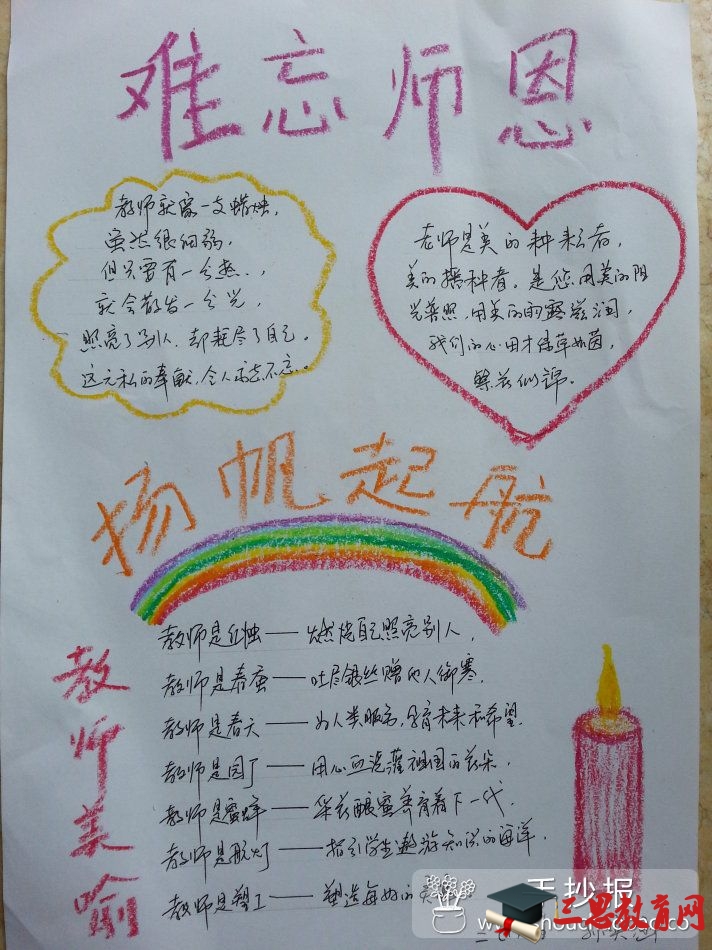 难忘师恩
教师就象一支蜡烛，
虽然很细弱，
但只要有一分热..，
就会散发一分光，
照亮了别人，却耗尽了自己。
这无私的奉献，令人永志不忘..
老师是美的耕耘者，
美的播种者。是您用美的阳
光普照，用美的雨露滋润，
我们的心田才绿草如茵，
繁花似锦。
扬帆起航
教师美喻
教师是红烛——燃烧自己照亮别人，
教师是春蚕——吐尽银丝赠他人御寒。
教师是春天——为人类服务，孕育未来和希望。
教师是园丁——用心血浇灌祖国的花朵，
教师是蜜蜂——采花酿蜜养育着下一代，
教师是航灯——指引学生遨游知识的海洋，
教师是塑工——塑造每好的
手抄报
三思教育网